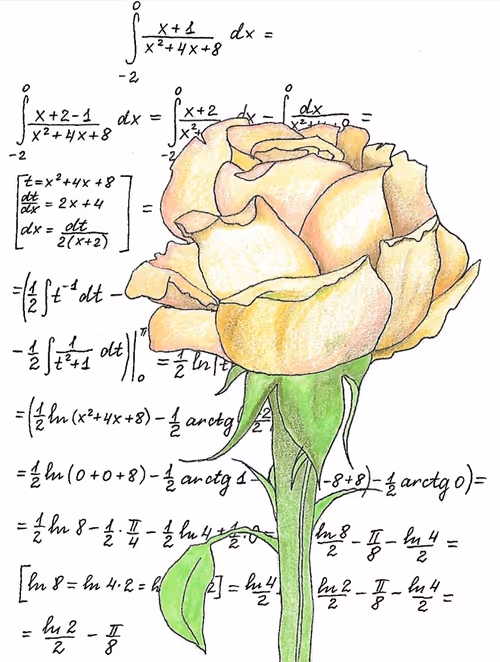 ∫₋₂⁰ (x+1)/(x²+4x+8) dx =
∫₋₂⁰ (x+2-1)/(x²+4x+8) dx = ∫₋₂⁰ (x+2)/x² dx - ∫₋₂⁰ dx/ =
[t = x²+4x+8
dt/dx = 2x+4
dx = dt/2(x+2)] =
= (1/2 ∫ t⁻¹ dt -
- 1/2 ∫ 1/(t²+1) dt)|₀ = 1/2 ln|t
= (1/2 ln(x²+4x+8) - 1/2 arctg(
= 1/2 ln(0+0+8) - 1/2 arctg 1 - -8+8) - 1/2 arctg 0) =
= 1/2 ln 8 - 1/2 · π/4 - 1/2 ln 4 + 1/2 · 0 ln 8/2 - π/8 - ln 4/2 =
[ln 8 = ln 4·2 = 2] = ln 4/2 ln 2/2 - π/8 - ln 4/2 =
= ln 2/2 - π/8